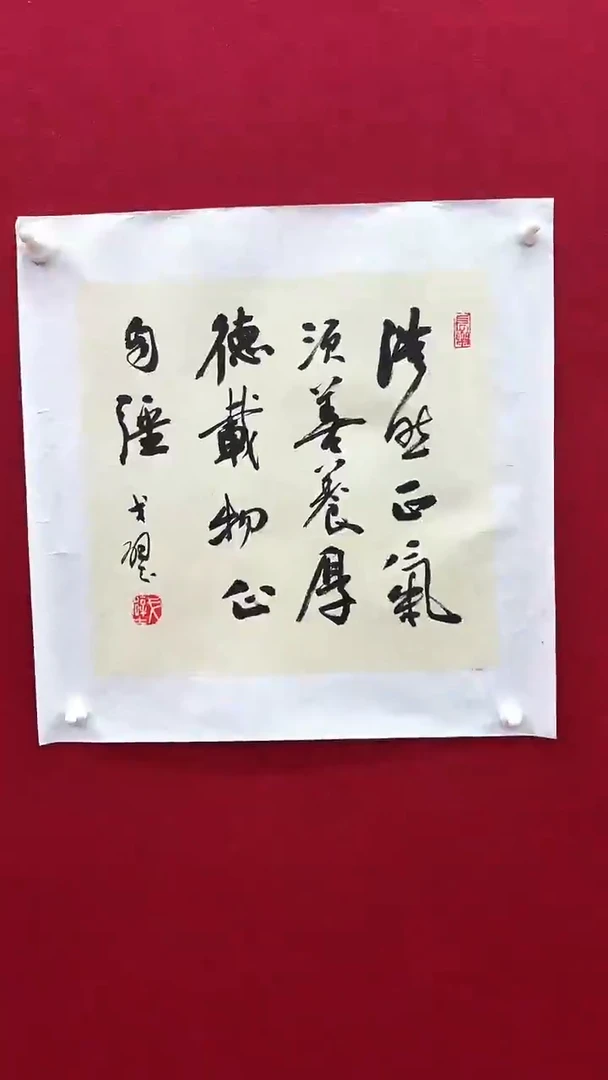 浩然正氣
須善養厚
德載物
自彊